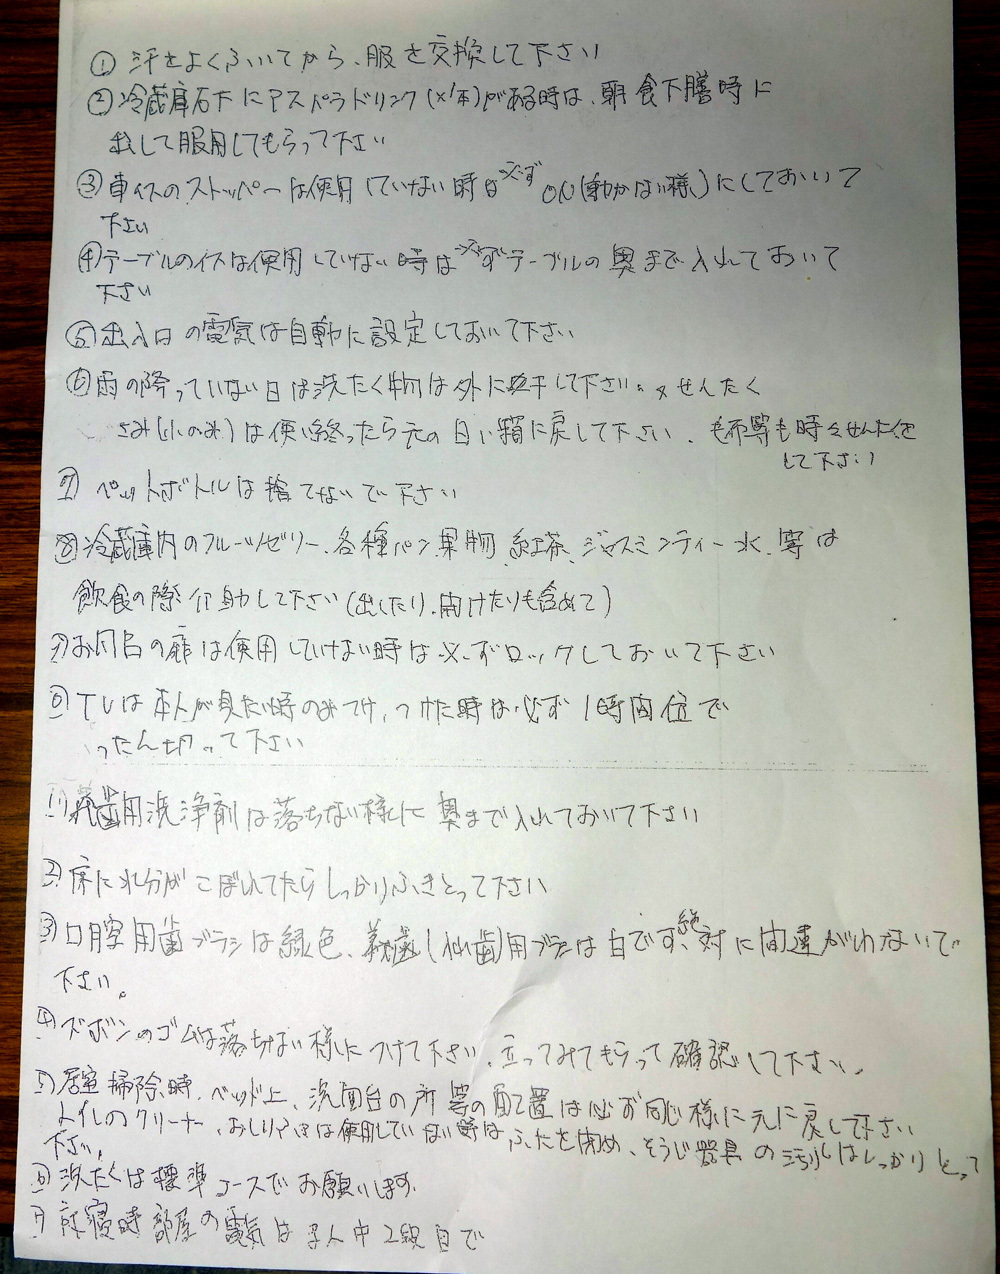 ① 汗をよくふいてから、服を交換して下さい
②冷蔵庫右下にアスパラドリンク(×1本)がある時は、朝食下膳時に
出して服用してもらって下さい
③車イスのストッパーは使用していない時は必ずON(動かない様)にしておいて
下さい
④テーブルのイスは使用していない時は必ずテーブルの奥まで入れておいて
下さい
⑤出入口の電気は自動に設定しておいて下さい
⑥雨の降っていない日は洗たく物は外に干して下さい。せんたく
(小のみ)は使い終ったら元の白い箱に戻して下さい、毛布等も時々せんたくを
して下さい
⑦ ペットボトルは捨てないで下さい
⑧冷蔵庫内のフルーツゼリー、各種パン、果物、紅茶、ジャスミンティー、水、等は
飲食の際介助して下さい(出したり、開けたりも含めて)
⑨お風呂の扉は使用していない時は必ずロックしておいて下さい
⑩TVは本人が見たい時のみつけ、つけた時は必ず1時間位で
いったん切って下さい
⑪入歯用洗浄剤は落ちない様に奥まで入れておいて下さい
⑫床に水分がこぼれてたらしっかりふきとって下さい
⑬口腔用歯ブラシは緑色、義歯(入れ歯)用ブラシは白です、絶対に間違がわないで
下さい。
⑭ズボンのゴムは落ちない様につけて下さい、立ってみてもらって確認して下さい。
⑮居室掃除時、ベッド上、洗面台の所等の配置は必ず同じ様に元に戻して下さい
トイレのクリーナー、おしりふきは使用していない時はふたを閉め、そうじ器具の汚れはしっかりとって
下さい。
⑯洗たくは標準コースでお願いします。
⑰就寝時部屋の電気は 中2段目で